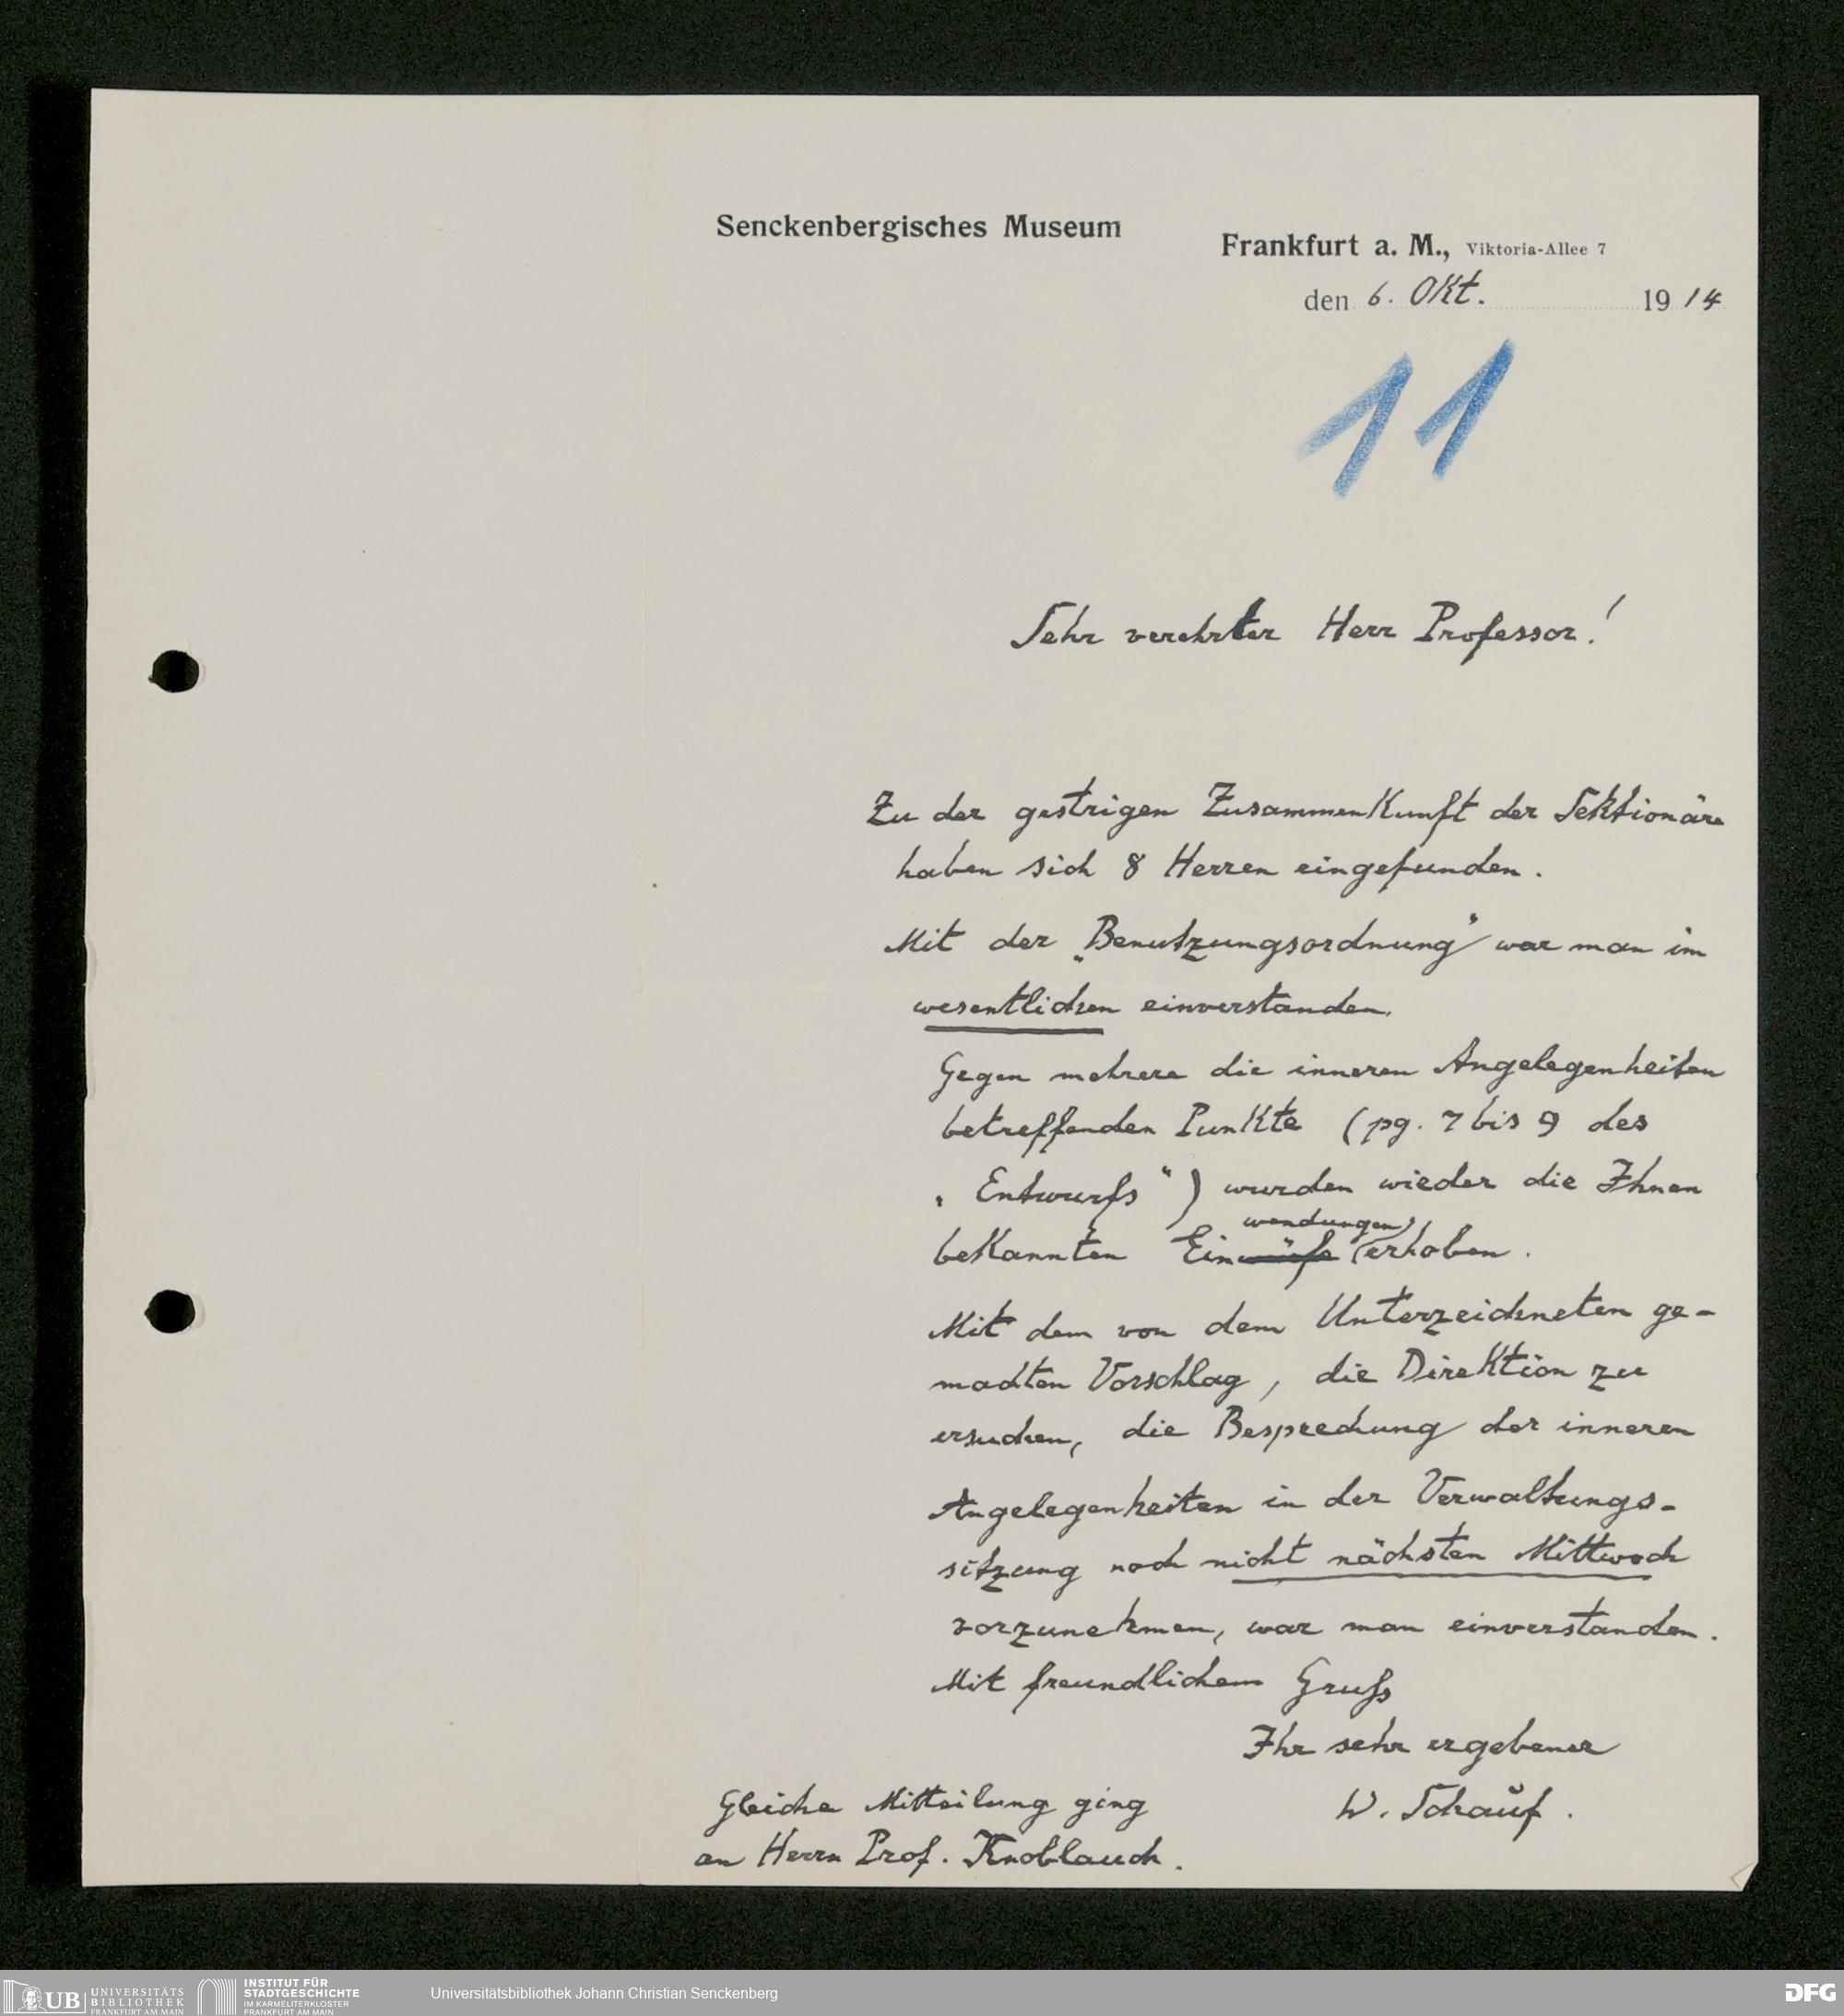 Senckenbergisches Museum
Frankfurt a. M., Viktoria-Allee 7
den 6. Okt. 1914
11
Sehr verehrter Herr Professor!
Zu der gestrigen Zusammenkunft der Sektionäre
haben sich 8 Herren eingefunden.
Mit der „Benutzungsordnung" war man im
wesentlichen einverstanden.
Gegen mehrere die inneren Angelegenheiten
betreffenden Punkte (pg. 7 bis 9 des
„Entwurfs") wurden wieder die Ihnen
wendungen
bekannten Einwürfe erhoben.
Mit dem von dem Unterzeichneten ge-
machten Vorschlag, die Direktion zu
ersuchen, die Besprechung der inneren
Angelegenheiten in der Verwaltungs-
sitzung noch nicht nächsten Mittwoch
vorzunehmen, war man einverstanden.
Mit freundlichem Gruß
Ihr sehr ergebener
W. Schauf.
Gleiche Mitteilung ging
an Herrn Prof. Knoblauch.
UB UNIVERSITÄTS BIBLIOTHEK FRANKFURT AM MAIN
INSTITUT FÜR STADTGESCHICHTE IM KARMELITERKLOSTER FRANKFURT AM MAIN
Universitätsbibliothek Johann Christian Senckenberg
DFG